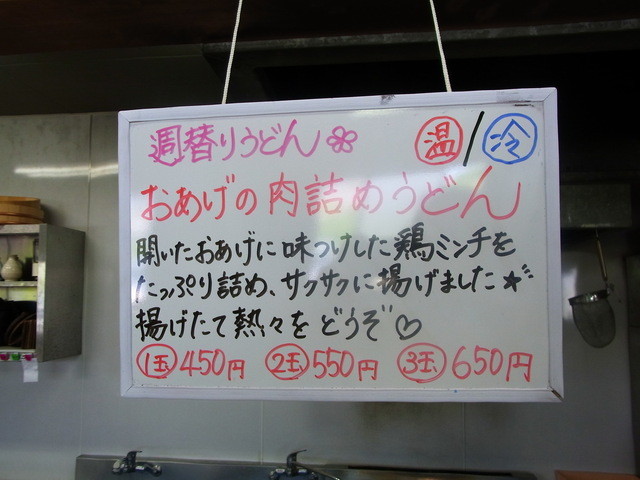 週替りうどん 温/冷
おあげの肉詰めうどん
開いたおあげに味つけした鶏ミンチを
たっぷり詰め、サクサクに揚げました☆
揚げたて熱々をどうぞ♡
1玉450円 2玉550円 3玉650円